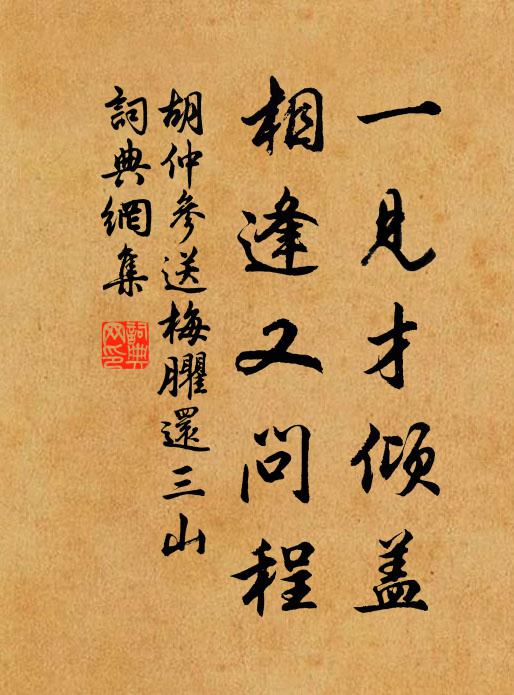 一見才傾蓋
相逢又問程
胡仲參送梅臞還三山
詞典網集
詞典网印